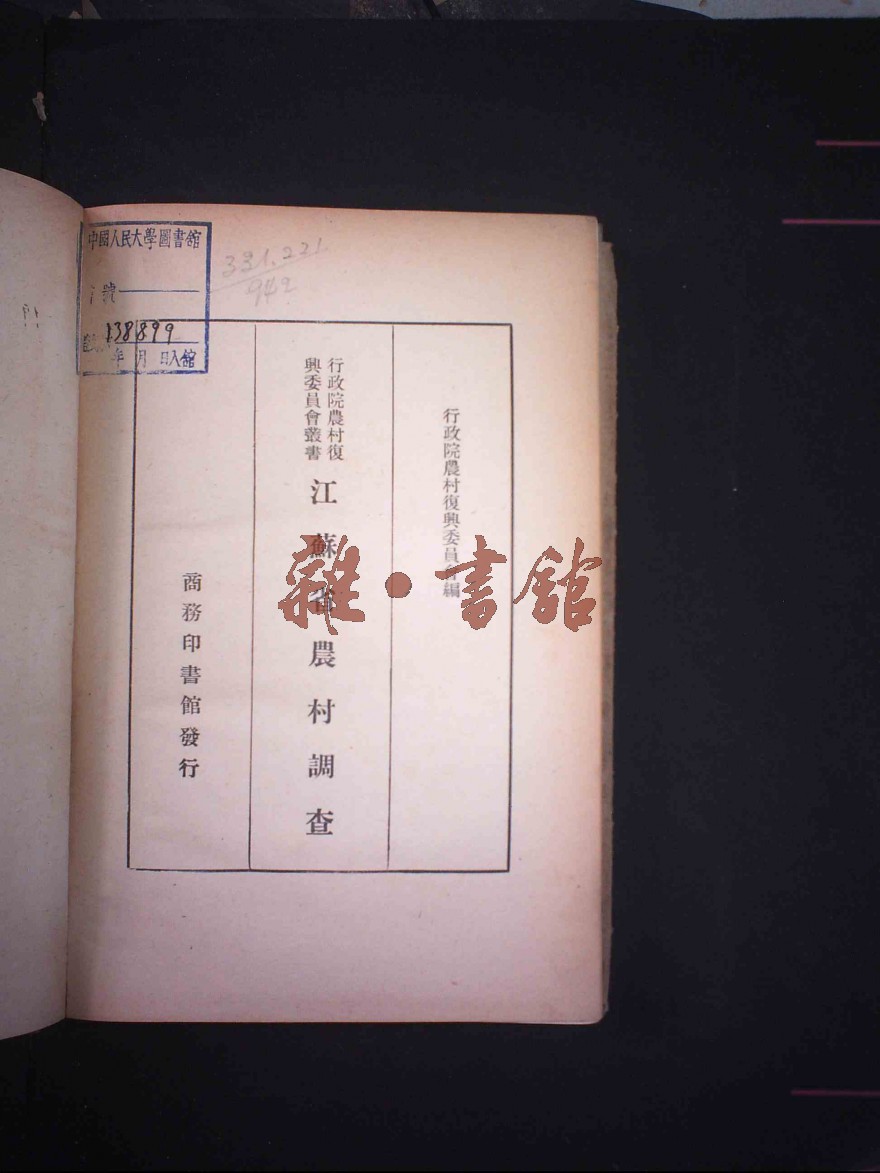 中國人民大學圖書館
號
138899
年 月 日入館
331.231
942
行政院農村復興委員會編
行政院農村復
興委員會叢書
江蘇省農村調查
商務印書館發行
雜·書館